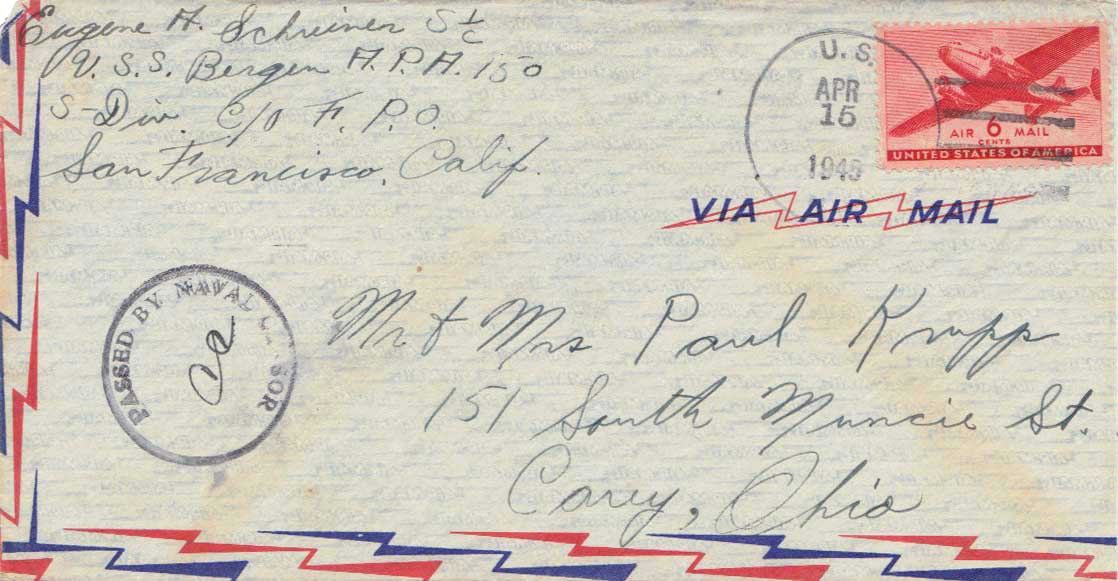 Eugene H. Schreiner S 1/c
U.S.S. Bergen A.P.A. 150
S-Div. C/O F.P.O.
San Francisco, Calif.
U.S.
APR
15
1945
AIR 6 MAIL
CENTS
UNITED STATES OF AMERICA
VIA AIR MAIL
PASSED BY NAVAL CENSOR
Mr & Mrs Paul Krupp
151 South Muncie St.
Carey, Ohio